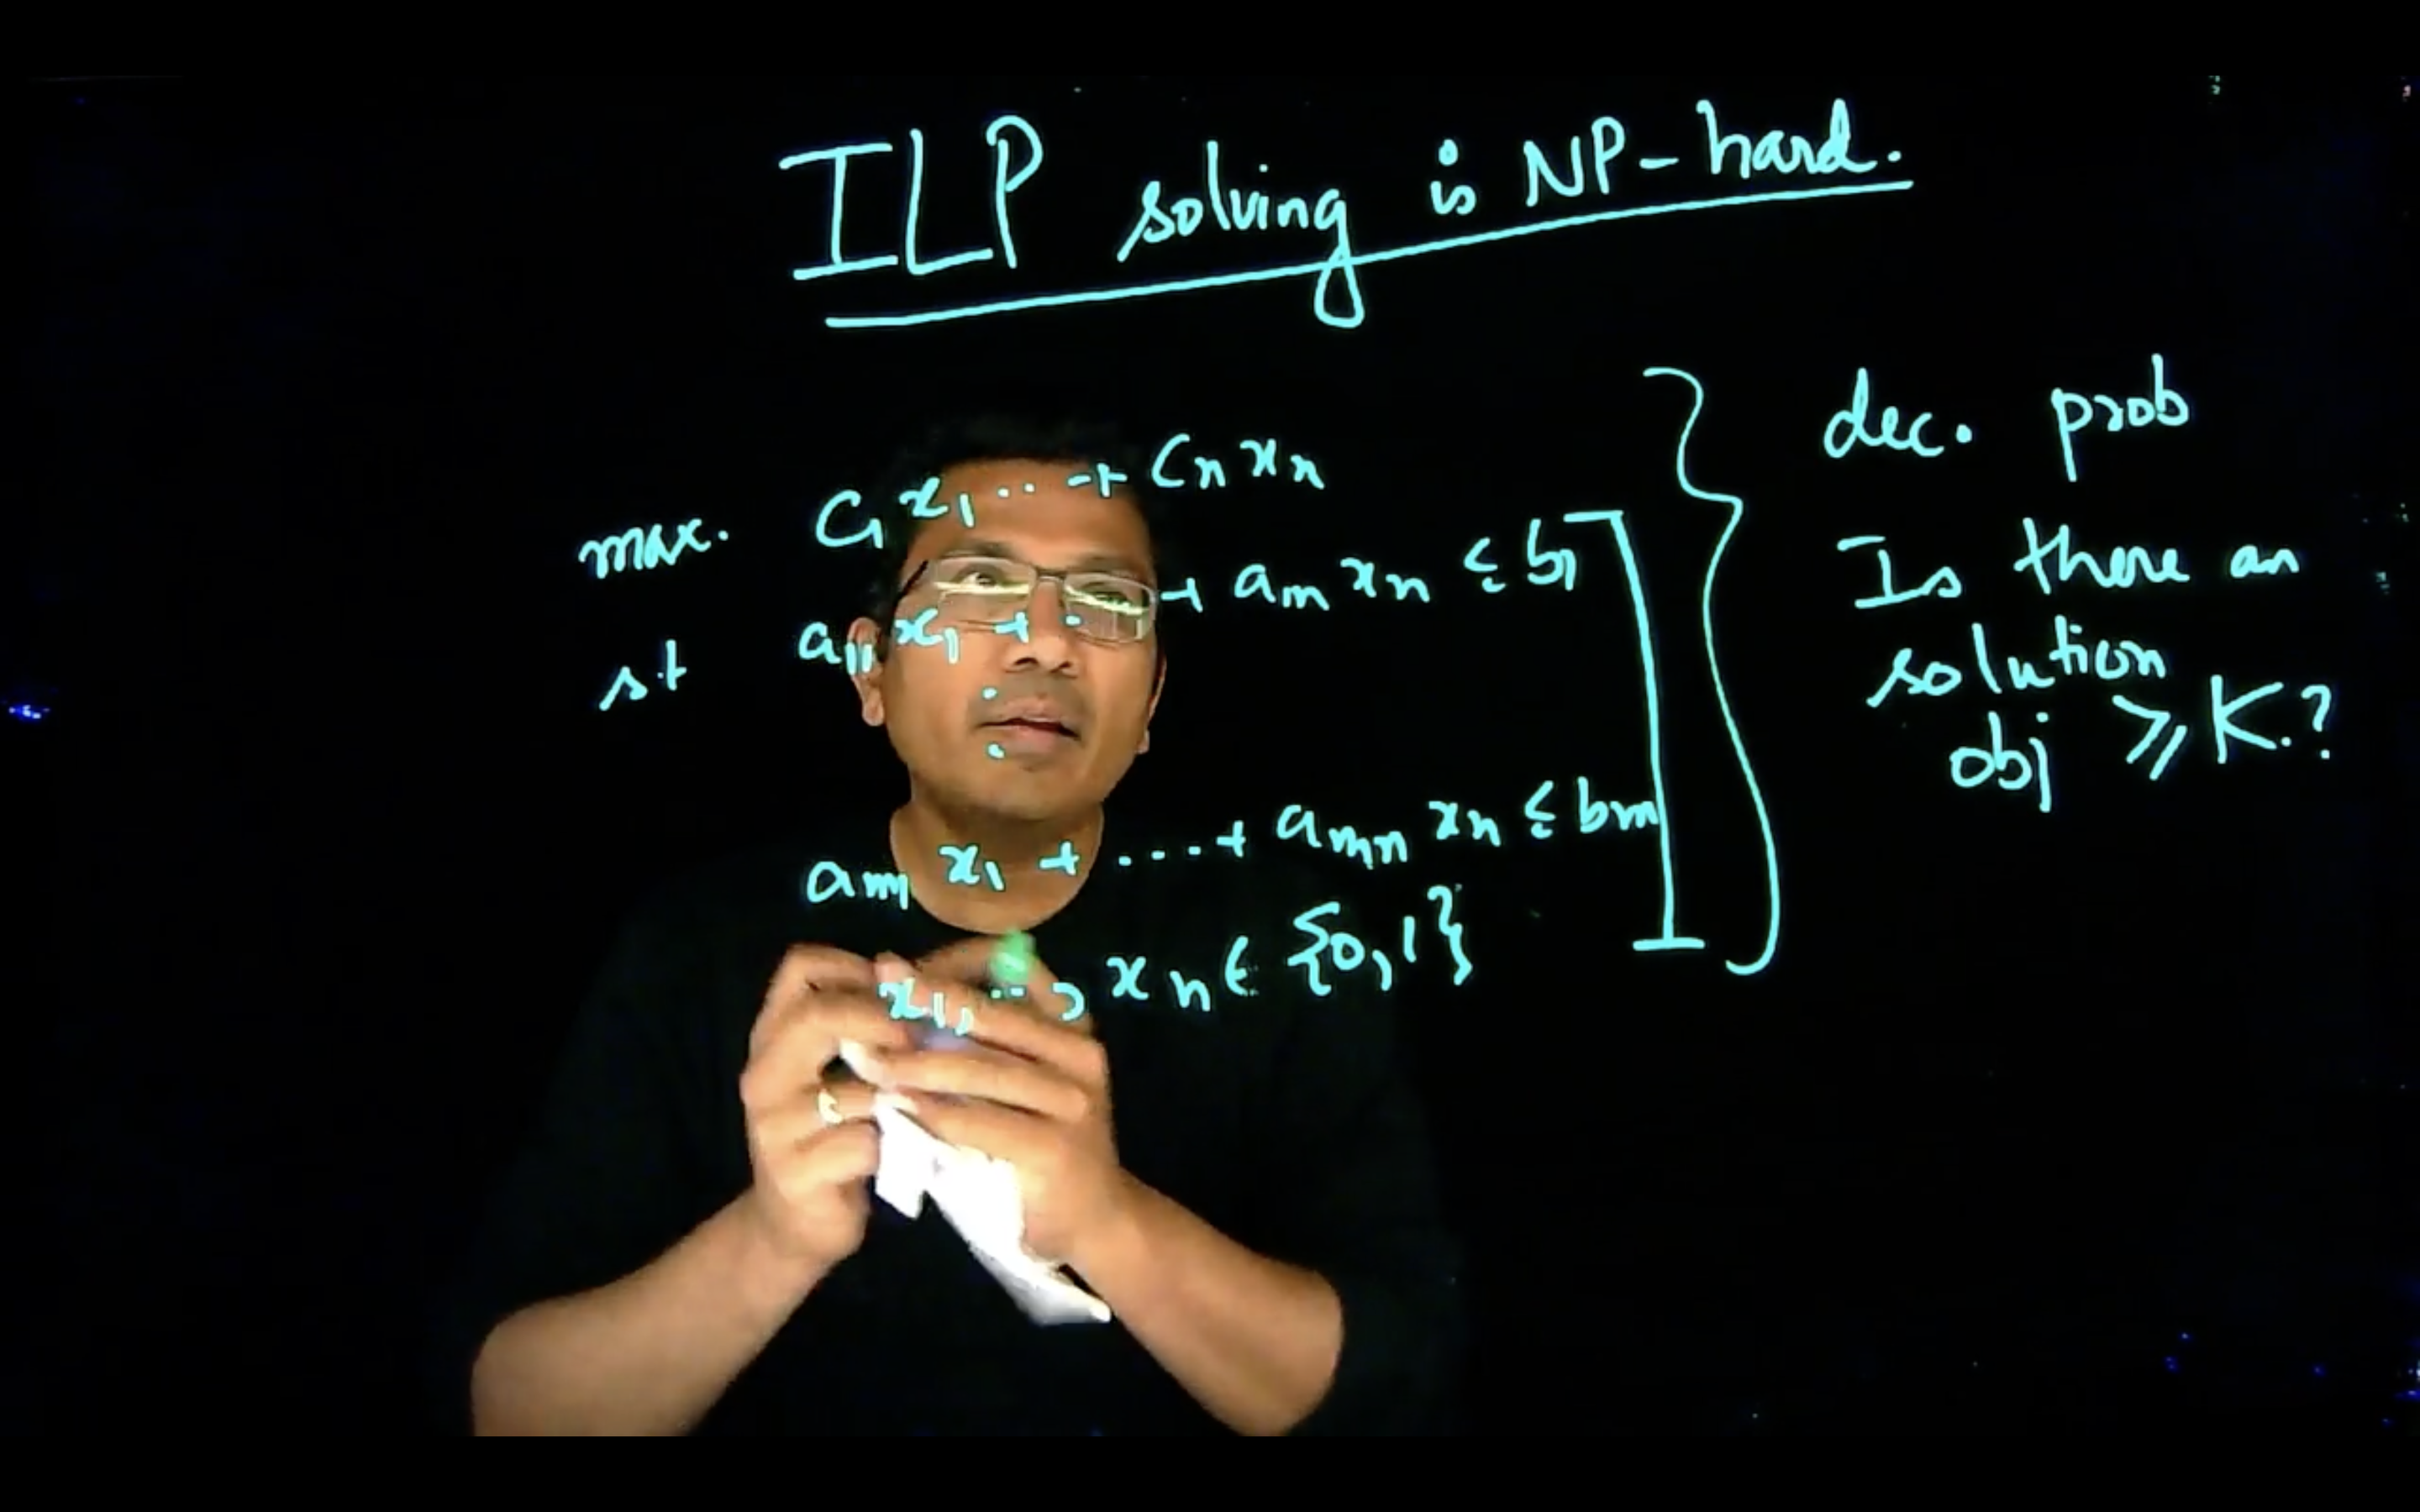 ILP solving is NP-hard.
max. C₁ x₁ .. + Cₙ xₙ
st a₁₁ x₁ + . + aₘ xₙ ≤ b₁
.
.
aₘ₁ x₁ + ... + aₘₙ xₙ ≤ bₘ
x₁, .., xₙ ∈ {0,1}
dec. prob
Is there an
solution
obj ≥ K.?